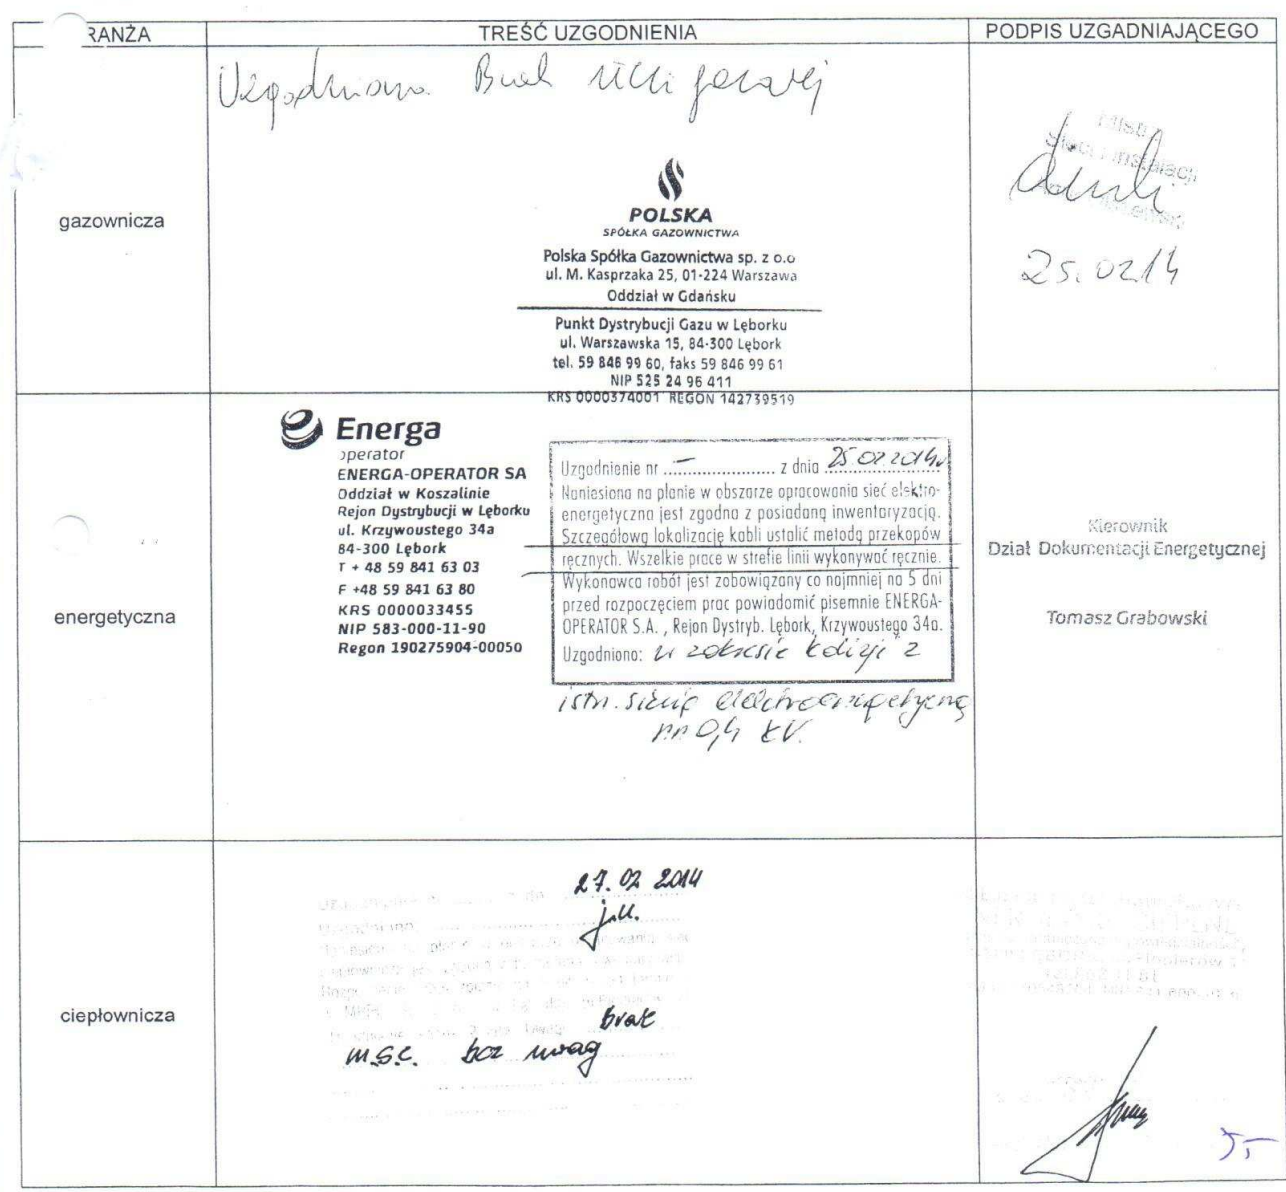 RANŻA TREŚĆ UZGODNIENIA PODPIS UZGADNIAJĄCEGO
Uzgodniono. Brak sieci gazowej
gazownicza
POLSKA
SPÓŁKA GAZOWNICTWA
Polska Spółka Gazownictwa sp. z o.o
ul. M. Kasprzaka 25, 01-224 Warszawa
Oddział w Gdańsku
Punkt Dystrybucji Gazu w Lęborku
ul. Warszawska 15, 84-300 Lębork
tel. 59 846 99 60, faks 59 846 99 61
NIP 525 24 96 411
KRS 0000374001 REGON 142739519
Mistrz
Sieci i Instalacji
25.02.14
energetyczna
Energa
operator
ENERGA-OPERATOR SA
Oddział w Koszalinie
Rejon Dystrybucji w Lęborku
ul. Krzywoustego 34a
84-300 Lębork
T + 48 59 841 63 03
F +48 59 841 63 80
KRS 0000033455
NIP 583-000-11-90
Regon 190275904-00050
Uzgodnienie nr – z dnia 25.02.2014r
Naniesiona na planie w obszarze opracowania sieć elektro-
energetyczna jest zgodna z posiadaną inwentaryzacją.
Szczegółową lokalizację kabli ustalić metodą przekopów
ręcznych. Wszelkie prace w strefie linii wykonywać ręcznie.
Wykonawca robót jest zobowiązany co najmniej na 5 dni
przed rozpoczęciem prac powiadomić pisemnie ENERGA-
OPERATOR S.A. , Rejon Dystryb. Lębork, Krzywoustego 34a.
Uzgodniono: w zakresie kolizji z
istn. siecią elektroenergetyczną
nn 0,4 kV.
Kierownik
Dział Dokumentacji Energetycznej
Tomasz Grabowski
ciepłownicza
27.02 2014
j.u.
brak
m.s.c. bez uwag